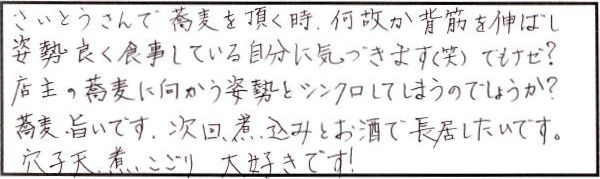 さいとうさんで蕎麦を頂く時、何故か背筋を伸ばし
姿勢良く食事している自分に気づきます(笑) でもナゼ?
店主の蕎麦に向かう姿勢とシンクロしてしまうのでしょうか?
蕎麦、旨いです。次回、煮込みとお酒で長居したいです。
穴子天、煮こごり 大好きです!